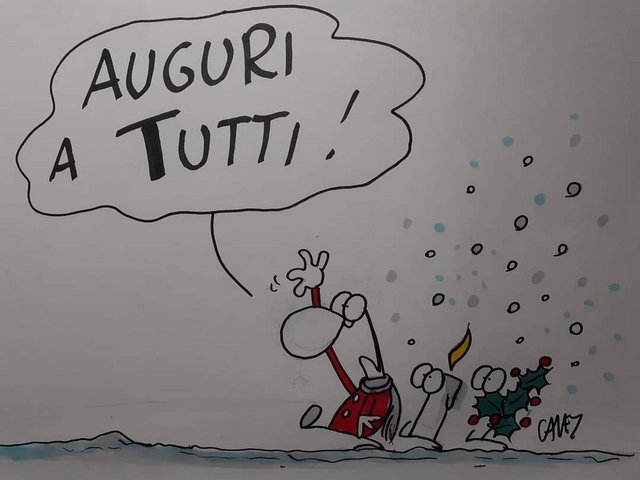 AUGURI
A TUTTI!
CAVEZ